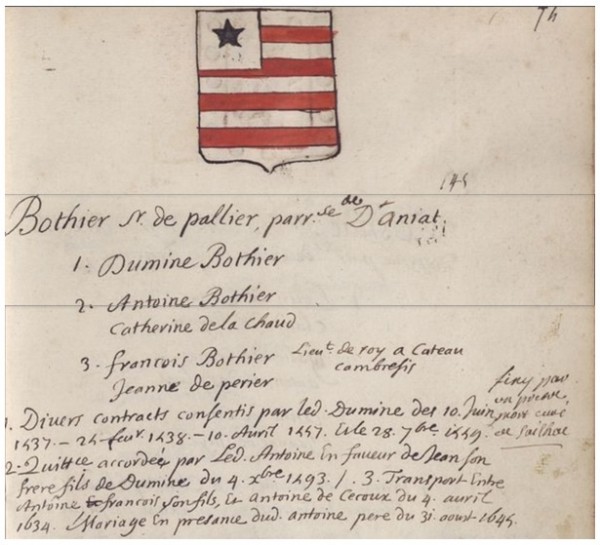 Th
145
Bothier Sr. de pallier, parr.se de D'aniat.
1. Dumine Bothier
2. Antoine Bothier
Catherine dela Chaud
3. francois Bothier Lieut. de roy a Cateau
cambresis
Jeanne de perier
finy par
1. Divers contracts consentis par led. Dumine des 10. Juin
1537. - 24. feur. 1538. - 10. Avril 1557. Et le 28. 7bre 1559.
2. Quittce accordée par Led. Antoine En faueur de Jean son
frere fils de Dumine du 4. xbre 1593. /. 3. Transport Entre
Antoine & francois son fils, Et antoine de Cecoux du 4. auril
1634. Mariage En presance dud. antoine pere du 31. aoust 1645.